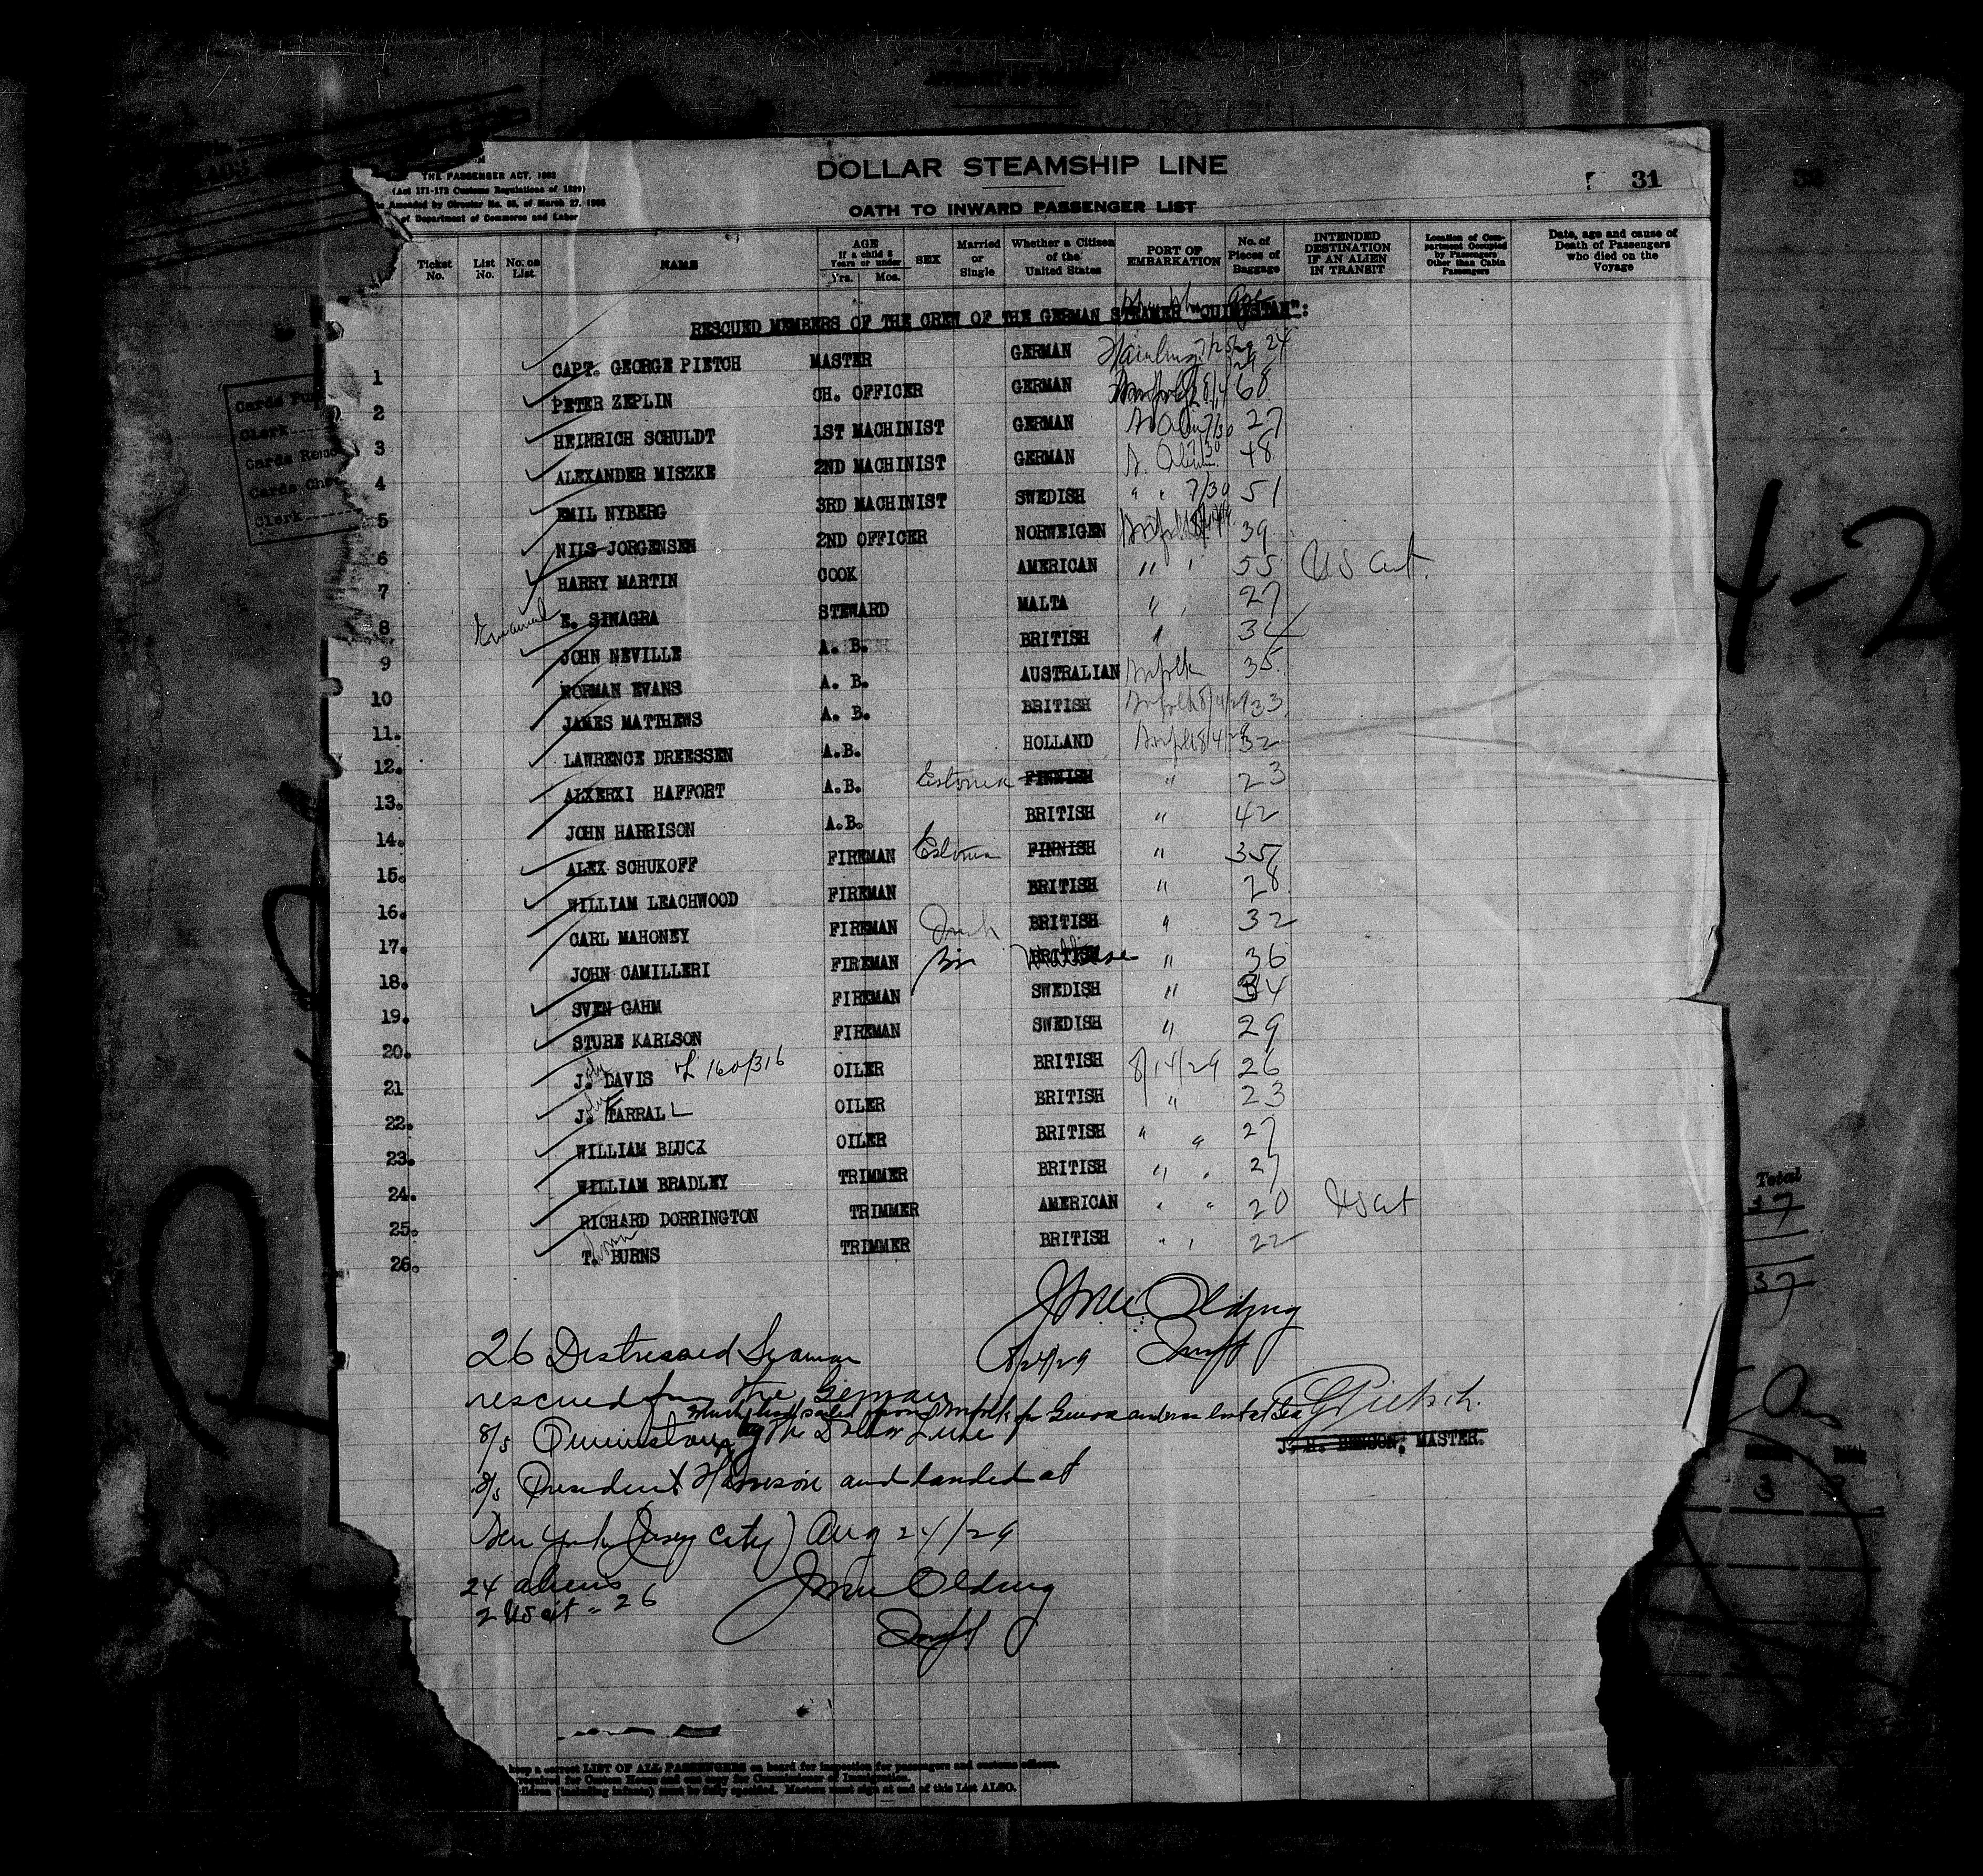 THE PASSENGER ACT, 1882
(Act 171-173 Customs Regulations of 1899)
Amended by Circular No. 65, of March 27, 1908
of Department of Commerce and Labor
DOLLAR STEAMSHIP LINE
31
OATH TO INWARD PASSENGER LIST
Ticket No. List No. No. on List. NAME AGE If a child 8 Years or under Yrs. Mos. SEX Married or Single Whether a Citizen of the United States PORT OF EMBARKATION No. of Pieces of Baggage INTENDED DESTINATION IF AN ALIEN IN TRANSIT Location of Compartment Occupied by Passengers Other than Cabin Passengers Date, age and cause of Death of Passengers who died on the Voyage
Age
RESCUED MEMBERS OF THE CREW OF THE GERMAN STEAMER "QUIMISTAN":
1 CAPT. GEORGE PIETCH MASTER GERMAN Hamburg 7/25/29 24
2 PETER ZEPLIN CH. OFFICER GERMAN Norfolk 8/14 68
3 HEINRICH SCHULDT 1ST MACHINIST GERMAN 7/30 27
4 ALEXANDER MISZKE 2ND MACHINIST GERMAN 48
5 EMIL NYBERG 3RD MACHINIST SWEDISH " " 7/30 51
6 NILS JORGENSEN 2ND OFFICER NORWEIGEN Norfolk 39
7 HARRY MARTIN COOK AMERICAN " " 55 US Cit.
8 Emanuel E. SINAGRA STEWARD MALTA " " 27
9 JOHN NEVILLE A. B. BRITISH " 34
10 NORMAN EVANS A. B. AUSTRALIAN Norfolk 35
11. JAMES MATTHEWS A. B. BRITISH Norfolk 8/14/29 33
12. LAWRENCE DREESSEN A.B. HOLLAND Norfolk 8/14/29 32
13. ALXERXI HAFFORT A.B. Estonia FINNISH " 23
14. JOHN HARRISON A.B. BRITISH " 42
15. ALEX SCHUKOFF FIREMAN Estonia FINNISH " 35
16. WILLIAM LEACHWOOD FIREMAN BRITISH " 28
17. CARL MAHONEY FIREMAN Irish BRITISH " 32
18. JOHN CAMILLERI FIREMAN BRITISH Maltese " 36
19. SVEN GAHM FIREMAN SWEDISH " 34
20. STURE KARLSON FIREMAN SWEDISH " 29
21 J. DAVIS 160/316 OILER BRITISH 8/14/29 26
22. J. FARRALL OILER BRITISH " 23
23. WILLIAM BLUCK OILER BRITISH " " 27
24. WILLIAM BRADLEY TRIMMER BRITISH " " 27
25. RICHARD DORRINGTON TRIMMER AMERICAN " " 20 US Cit
26. T. BURNS TRIMMER BRITISH " " 22
Olding
Inspt
8/24/29
26 Distressed Seaman
rescued from the German
which had sailed from Norfolk for Genoa and was lost at Sea
G Pietsch.
S/S Quimistan by the Dollar Line
J. H. BENSON, MASTER.
S/S President Harrison and landed at
New York (Jersey City) Aug 24/29
24 aliens
2 US cit = 26
Olding
Inspt
keep a correct LIST OF ALL PASSENGERS on board for inspection for passengers and customs officers.
children (including infants) must be fully specified. Masters must sign at end of this List ALSO.
Clerk
Clerk
4-2
Total
37
37
3